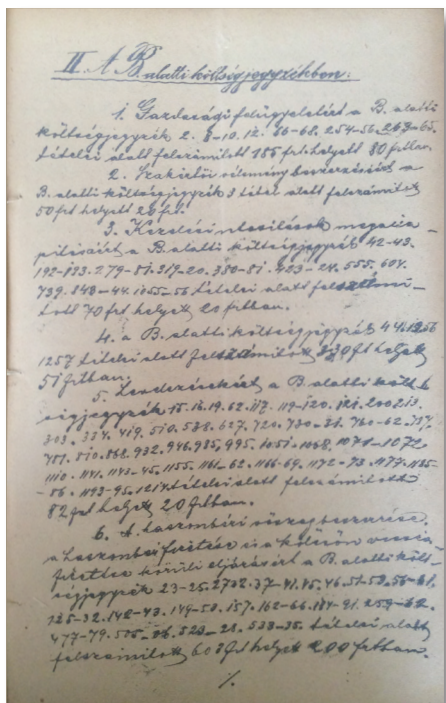 II. A B. alatti költségjegyzékben:
1. Gazdasági felügyeletért a B. alatti
költségjegyzék 2. 8-10. 12. 66-68. 254-56. 263-65.
tételei alatt felszámított 185 frt. helyett 80 ftban.
2. Szakértői vélemény beszerzéséért a
B. alatti költségjegyzék 3 tétel alatt felszámított
50 frt helyett 20 frt.
3. Kezelési utasítások megállapításáért
a B. alatti költségjegyzék 42-43.
192-193. 279-81. 319-20. 380-81. 423-24. 555. 604.
739. 843-44. 1055-56 tételei alatt felszámított
70 frt helyett 20 ftban.
4. a B. alatti költségjegyzék 1256
1257 tételei alatt felszámított 30 ft helyett
5 ftban.
5. a B. alatti költségjegyzék
15. 16. 19. 62. 117. 119-120. 200. 213.
303. 334. 419. 510. 538. 627. 720. 730-31. 760-62.
781. 810. 868. 932. 946. 985. 995. 1051. 1068. 1071-1072
1110. 1141. 1143-45. 1155. 1161-62. 1166-69. 1172-73. 1177.
-86. 1193-95. 1217 tételei alatt felszámított
82 frt helyett 20 ftban.
6. A haszonbéri összeg beszerzése,
a haszonbér fizetése és a kölcsön vissza-
fizetése körüli eljárásért a B. alatti költ-
ségjegyzék 23-25. 27 32. 37-41. 45. 46. 51-53. 56-61.
125-32. 142-43. 149-53. 157. 162-66. 184-91. 259-62.
477-79. 505-06. 523-28. 533-35. tételei alatt
felszámított 603 frt helyett 200 frtban.